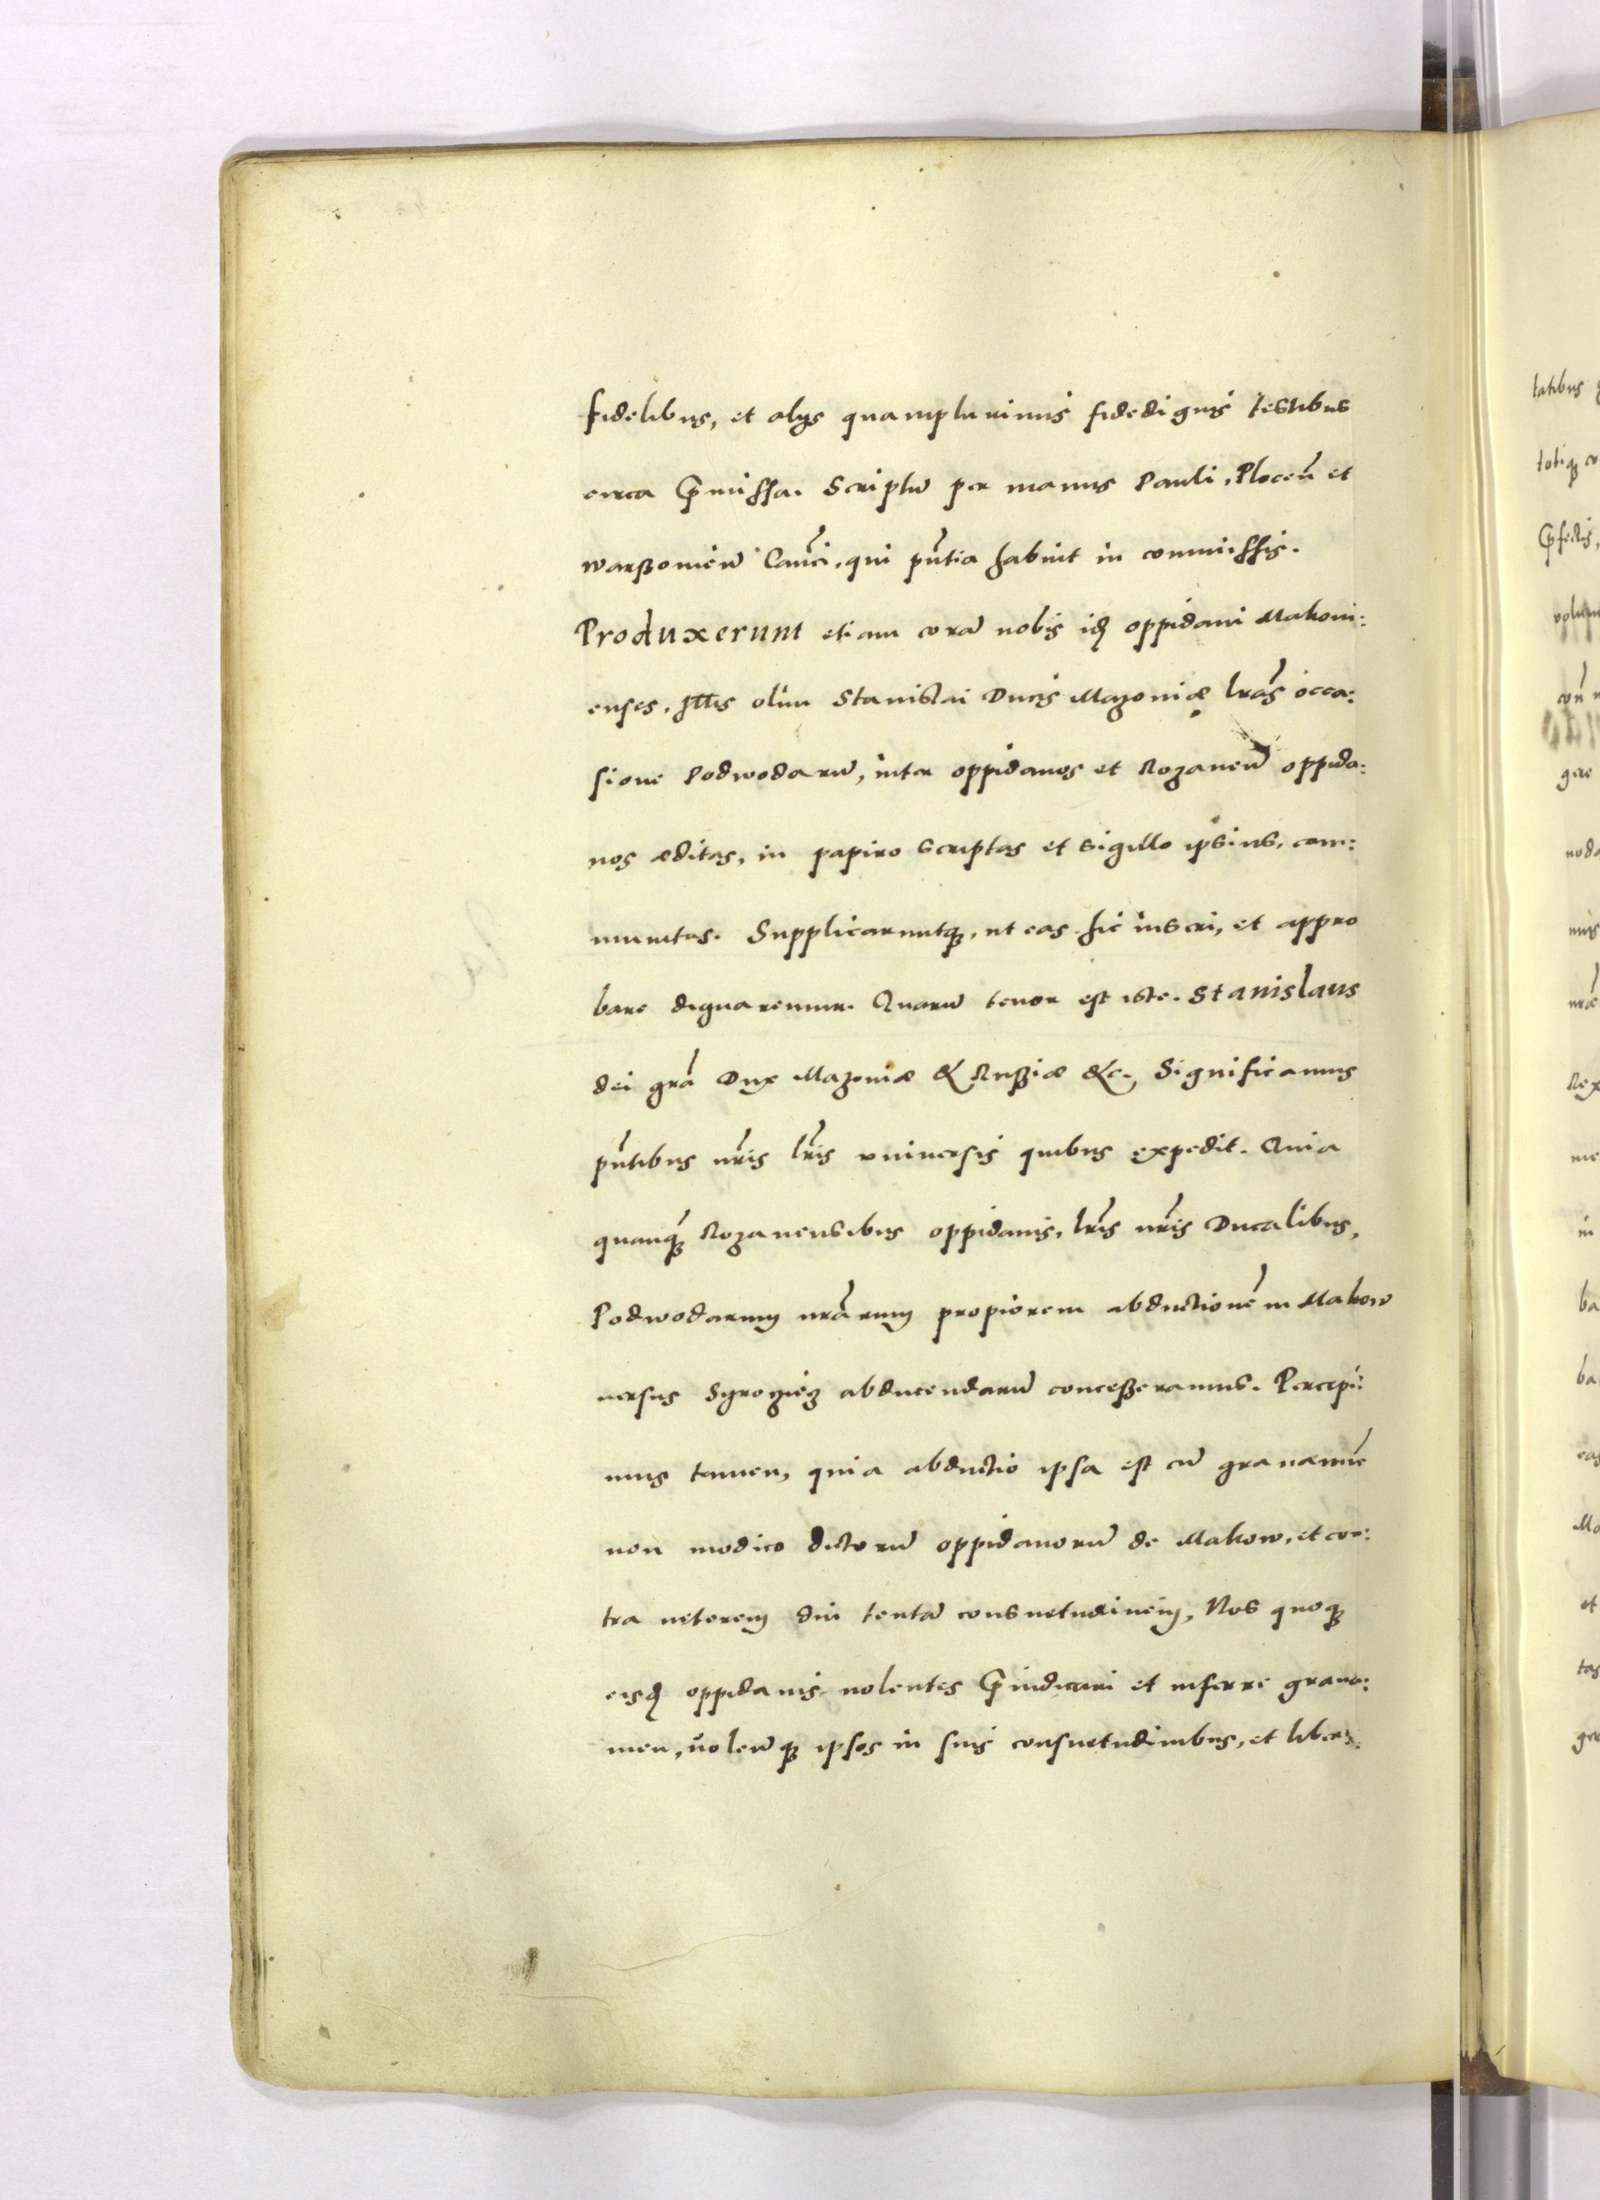 fidelibus, et alijs quamplurimis fidedignis testibus
circa p̃missa. Scriptũ per manus Pauli, Plocen̄ et
warßouien̄ Canci, qui pn̄tia habuit in commissis.
Produxerunt etiam corã nobis idẽ oppidani Makoui:
enses, Illis olim Stanislai Ducis Mazouiæ lrãs occa:
sione Podwodarũ, inter oppidanos et Rozanen̄ oppida:
nos æditas, in papiro scriptas et sigillo ipsius, com:
munitas. Supplicaruntqꝫ, ut eas hic inscri, et appro
bare dignaremur. Quarũ tenor est iste. Stanislaus
dei grã Dux Mazouiæ & Rußiæ &c. Significamus
pn̄tibus nr̃is lr̃is vniuersis quibus expedit. Quia
quanqꝫ Rozanensibus oppidanis, lr̃is nr̃is Ducalibus,
Podwodarum nrãrum propiorem abductionẽ in Makow
uersus abducendarũ conceßeramus. Percepi:
mus tamen, quia abductio ipsa est cũ grauamiñe
non modico dictorũ oppidanorũ de Makow, et con:
tra ueterem diu tentã consuetudinem, Nos quoqꝫ
eisdẽ oppidanis nolentes p̃iudicari et inferre graua:
men, uolen̄qꝫ ipsos in suis consuetudinibus, et liber: